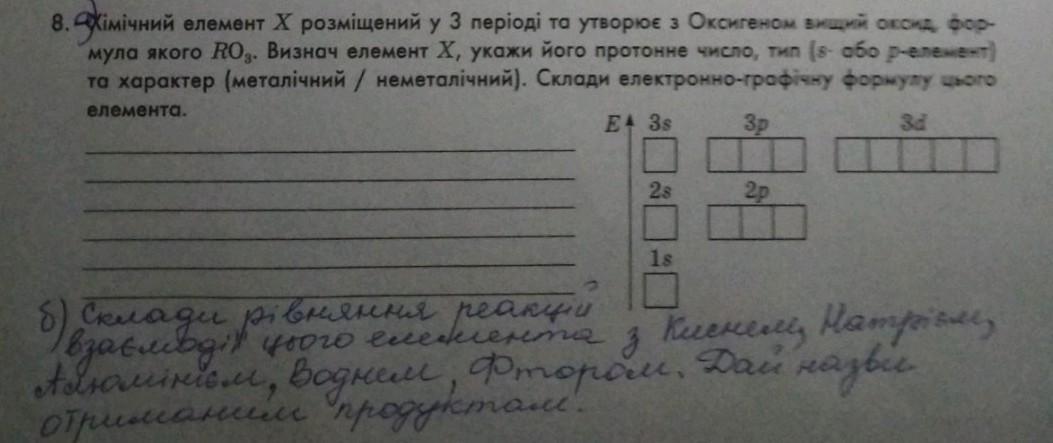 8. а) Хімічний елемент X розміщений у 3 періоді та утворює з Оксигеном вищий оксид, фор-
мула якого RO₃. Визнач елемент X, укажи його протонне число, тип (s- або p-елемент)
та характер (металічний / неметалічний). Склади електронно-графічну формулу цього
елемента.
E 3s 3p 3d
2s 2p
1s
б) Склади рівняння реакцій
взаємодії цього елемента з Киснем, Натрієм,
Алюмінієм, Воднем, Фтором. Дай назви
отриманим продуктам.